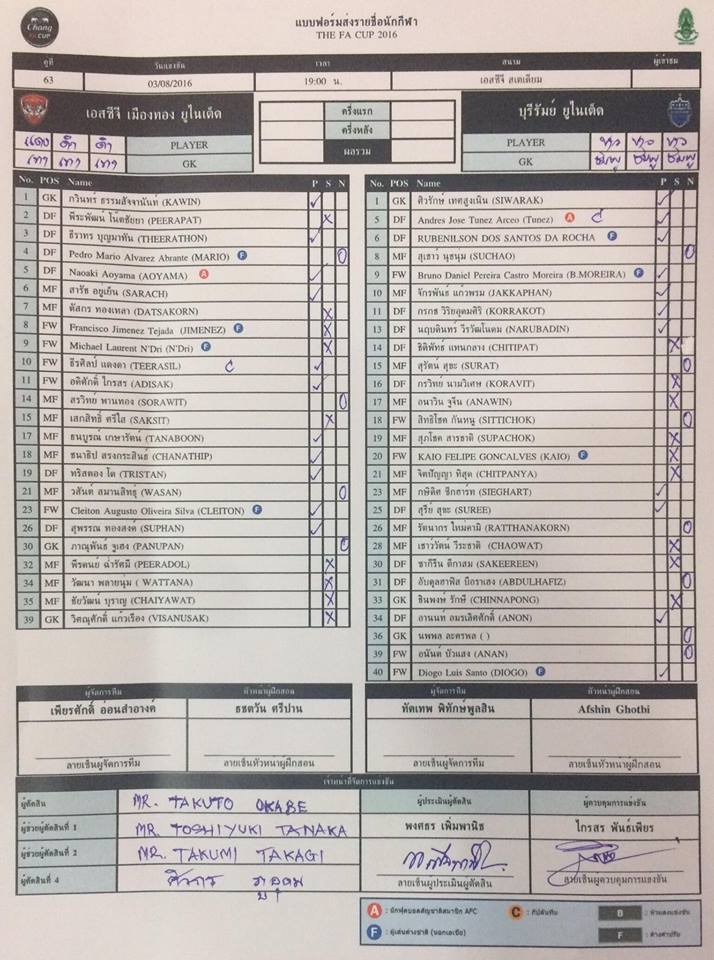 Chang
FA CUP
แบบฟอร์มส่งรายชื่อนักกีฬา
THE FA CUP 2016
คู่ที่ วันแข่งขัน เวลา สนาม ผู้เข้าชม
63 03/08/2016 19:00 น. เอสซีจี สเตเดียม
เอสซีจี เมืองทอง ยูไนเต็ด
ครึ่งแรก
ครึ่งหลัง
ผลรวม
บุรีรัมย์ ยูไนเต็ด
แดง ดำ ดำ PLAYER
เทา เทา เทา GK
PLAYER
GK ชมพู ชมพู ชมพู
No. POS Name P S N
1 GK กวินทร์ ธรรมสัจจานันท์ (KAWIN) ✓
2 DF พีระพัฒน์ โน๊ตชัยยา (PEERAPAT) X
3 DF ธีราทร บุญมาทัน (THEERATHON) ✓
4 DF Pedro Mario Alvarez Abrante (MARIO) F O
5 DF Naoaki Aoyama (AOYAMA) A ✓
6 MF สารัช อยู่เย็น (SARACH) ✓
7 MF ดัสกร ทองเหลา (DATSAKORN) X
8 FW Francisco Jimenez Tejada (JIMENEZ) F X
9 FW Michael Laurent N'Dri (N'Dri) F X
10 FW ธีรศิลป์ แดงดา (TEERASIL) C ✓
11 FW อดิศักดิ์ ไกรษร (ADISAK) ✓
14 MF สรวิทย์ พานทอง (SORAWIT) O
15 MF เสกสิทธิ์ ศรีใส (SAKSIT) X
17 MF ธนบูรณ์ เกษารัตน์ (TANABOON) ✓
18 MF ชนาธิป สรงกระสินธ์ (CHANATHIP) ✓
19 DF ทริสตอง โด (TRISTAN) ✓
21 MF วสันต์ สมานสิทธุ์ (WASAN) O
23 FW Cleiton Augusto Oliveira Silva (CLEITON) F ✓
26 DF สุพรรณ ทองสงค์ (SUPHAN) ✓
30 GK ภาณุพันธ์ จูเฮง (PANUPAN) O
32 MF พีรดนย์ ฉ่ำรัศมี (PEERADOL) X
34 MF วัฒนา พลายนุ่ม ( WATTANA) X
35 MF ชัยวัฒน์ บุราญ (CHAIYAWAT) X
39 GK วิศณุศักดิ์ แก้วเรือง (VISANUSAK) X
No. POS Name P S N
1 GK ศิวรักษ์ เทศสูงเนิน (SIWARAK) ✓
5 DF Andres Jose Tunez Arceo (Tunez) A C ✓
6 DF RUBENILSON DOS SANTOS DA ROCHA F ✓
8 MF สุเชาว์ นุชนุ่ม (SUCHAO) O
9 FW Bruno Daniel Pereira Castro Moreira (B.MOREIRA) F ✓
10 MF จักรพันธ์ แก้วพรม (JAKKAPHAN) ✓
11 DF กรกช วิริยอุดมศิริ (KORRAKOT) ✓
13 DF นฤบดินทร์ วีรวัฒโนดม (NARUBADIN) ✓
14 DF ชิติพัทธ์ แทนกลาง (CHITIPAT) X
15 MF สุรัตน์ สุขะ (SURAT) O
16 DF กรวิทย์ นามวิเศษ (KORAVIT) X
17 MF อนาวิน จูจีน (ANAWIN) X
18 FW สิทธิโชค กันหนู (SITTICHOK) O
19 MF สุภโชค สารชาติ (SUPACHOK) X
20 FW KAIO FELIPE GONCALVES (KAIO) F X
21 MF จิตปัญญา ทิสุด (CHITPANYA) X
23 MF กษิดิศ ซีกฮาร์ท (SIEGHART) ✓
25 DF สุรีย์ สุขะ (SUREE) ✓
26 MF รัตนากร ใหม่คามิ (RATTHANAKORN) O
28 MF เชาว์วัตน์ วีระชาติ (CHAOWAT) X
30 DF ซากีรีน ตีกาสม (SAKEEREEN) X
31 DF อับดุลฮาฟิส บือราเฮง (ABDULHAFIZ) O
33 GK ชินพงษ์ รักษี (CHINNAPONG) X
34 DF อานนท์ อมรเลิศศักดิ์ (ANON) ✓
36 GK นพพล ละครพล ( ) O
39 FW อนันต์ บัวแสง (ANAN) O
40 FW Diogo Luis Santo (DIOGO) F ✓
ผู้จัดการทีม หัวหน้าผู้ฝึกสอน ผู้จัดการทีม หัวหน้าผู้ฝึกสอน
เพียรศักดิ์ อ่อนสำอางค์ ธชตวัน ศรีปาน ทัดเทพ พิทักษ์พูลสิน Afshin Ghotbi
ลายเซ็นผู้จัดการทีม ลายเซ็นหัวหน้าผู้ฝึกสอน ลายเซ็นผู้จัดการทีม ลายเซ็นหัวหน้าผู้ฝึกสอน
เจ้าหน้าที่จัดการแข่งขัน
ผู้ตัดสิน MR. TAKUTO OKABE ผู้ประเมินผู้ตัดสิน ผู้ควบคุมการแข่งขัน
ผู้ช่วยผู้ตัดสินที่ 1 MR TOSHIYUKI TANAKA พงศธร เพิ่มพานิช ไกรสร พันธ์เพียร
ผู้ช่วยผู้ตัดสินที่ 2 MR. TAKUMI TAKAGI
ผู้ตัดสินที่ 4 ศิวกร ภูอุดม ลายเซ็นผู้ประเมินผู้ตัดสิน ลายเซ็นผู้ควบคุมการแข่งขัน
A : นักฟุตบอลสัญชาติสมาชิก AFC C : กัปตันทีม B
F : ผู้เล่นต่างชาติ (นอกเอเชีย) F : ค่าปรับ